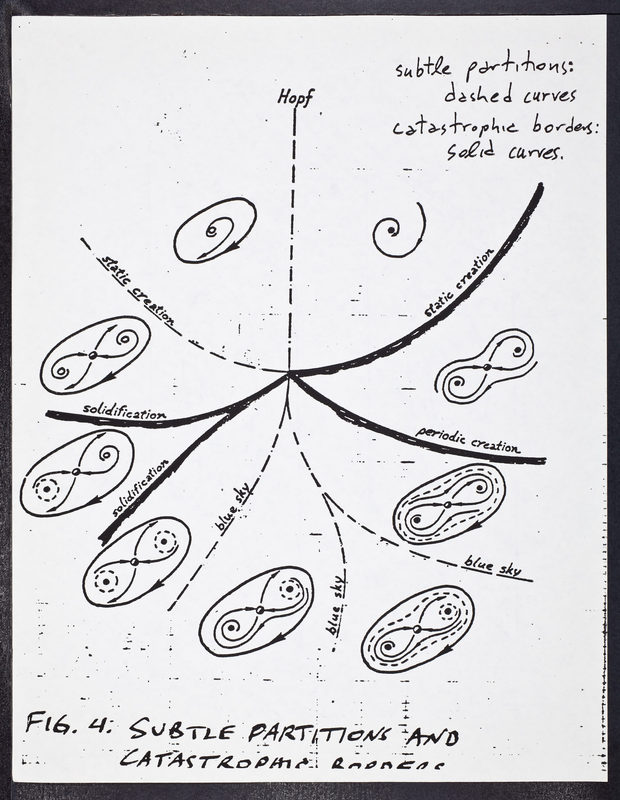 subtle partitions:
dashed curves
catastrophic borders:
solid curves.
Hopf
static creation
static creation
solidification
periodic creation
solidification
blue sky
blue sky
blue sky
FIG. 4. SUBTLE PARTITIONS AND
CATASTROPHIC BORDERS